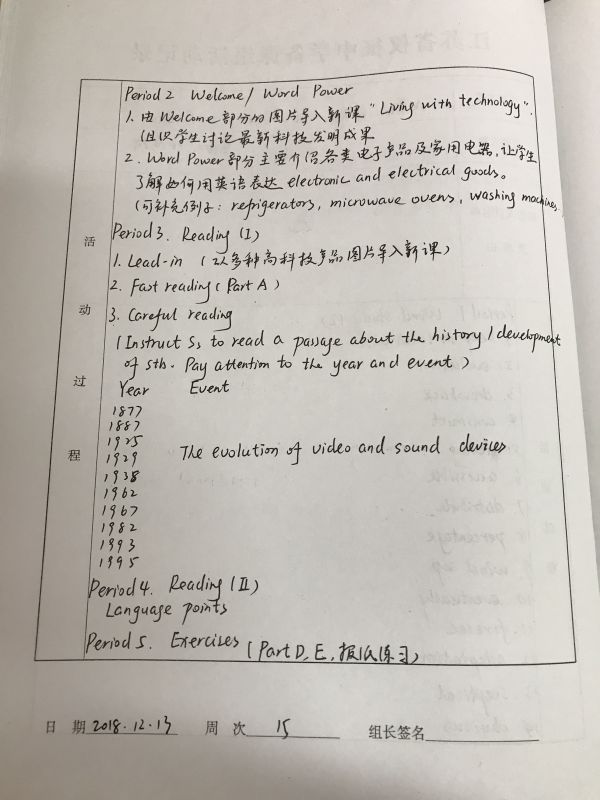 江苏省仪征中学备课组活动记录
Period 2 Welcome / Word Power
1. 由 Welcome 部分的图片导入新课 "Living with technology".
组织学生讨论最新科技发明成果
2. Word Power 部分主要介绍各类电子产品及家用电器, 让学生
了解如何用英语表达 electronic and electrical goods。
(可补充例子: refrigerators, microwave ovens, washing machines.
Period 3. Reading (I)
1. Lead-in (以多种高科技产品图片导入新课)
2. Fast reading (Part A)
3. Careful reading
(Instruct Ss to read a passage about the history / development
of sth. Pay attention to the year and event)
Year Event
1877
1887
1925
1929 The evolution of video and sound devices
1938
1962
1967
1982
1993
1995
Period 4. Reading (II)
Language points
Period 5. Exercises (Part D, E, 报纸练习)
活动过程
日 期 2018.12.13 周 次 15 组长签名